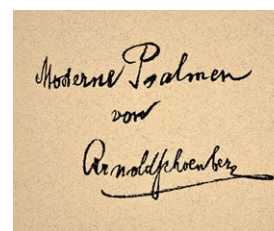 Moderne Psalmen
von
Arnold Schoenberg